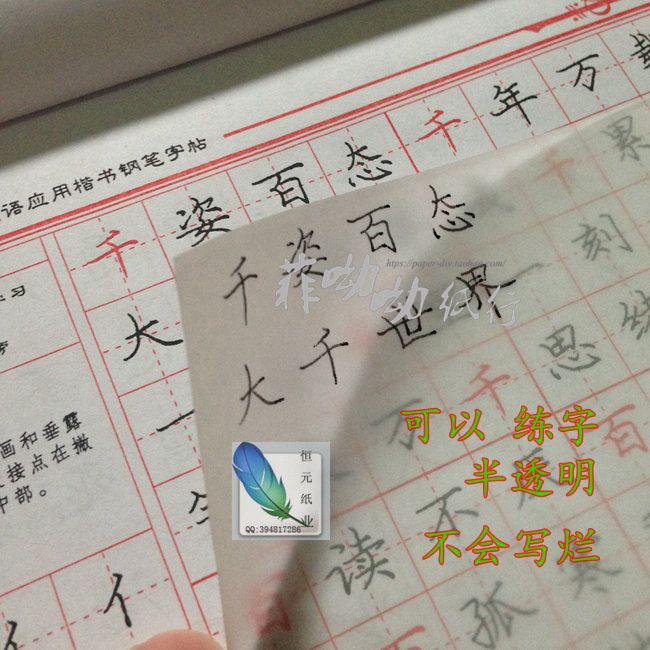 语应用楷书钢笔字帖
千姿百态千年万载
千姿百态
大千世界
大
https://papersdiy.taobao.com/
菲呦呦纸行
累
刻
千思绪
万
百
读不
孤寒
学习
画和垂露
接点在撇
中部。
恒元纸业
QQ:394817286
可以 练字
半透明
不会写烂